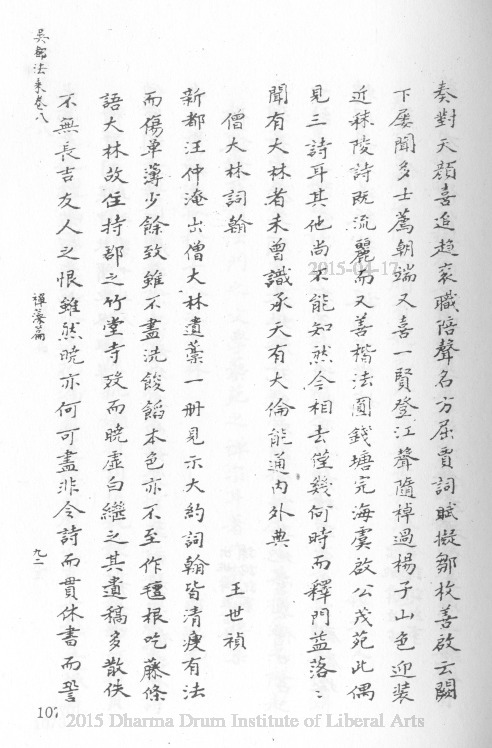 奏對天顏喜追趨袞職陪聲名方屈賈詞賦擬鄒枚善啟云闕
下屡聞多士薦朝端又喜一賢登江聲隨棹過楊子山色迎裝
近秣陵詩既流麗而又善楷法圓錢塘完海虞啟公茂苑此偶
見三詩耳其他尚不能知然今相去僅幾何時而釋門益落〻
聞有大林者未曾識承天有大倫能通內外典
僧大林詞翰
王世禎
新都汪仲淹出僧大林遺藁一冊見示大約詞翰皆清瘦有法
而傷單薄少餘致雖不盡洗餕饀本色亦不至作種根吃藤條
語大林故住持郡之竹堂寺歿而曉虛白繼之其遺稿多散佚
不無長吉友人之恨雖然曉亦何可盡非今詩而貫休書而䛒
吳都法乘卷八
禪藻篇
九二
107
2015-04-17
2015 Dharma Drum Institute of Liberal Arts